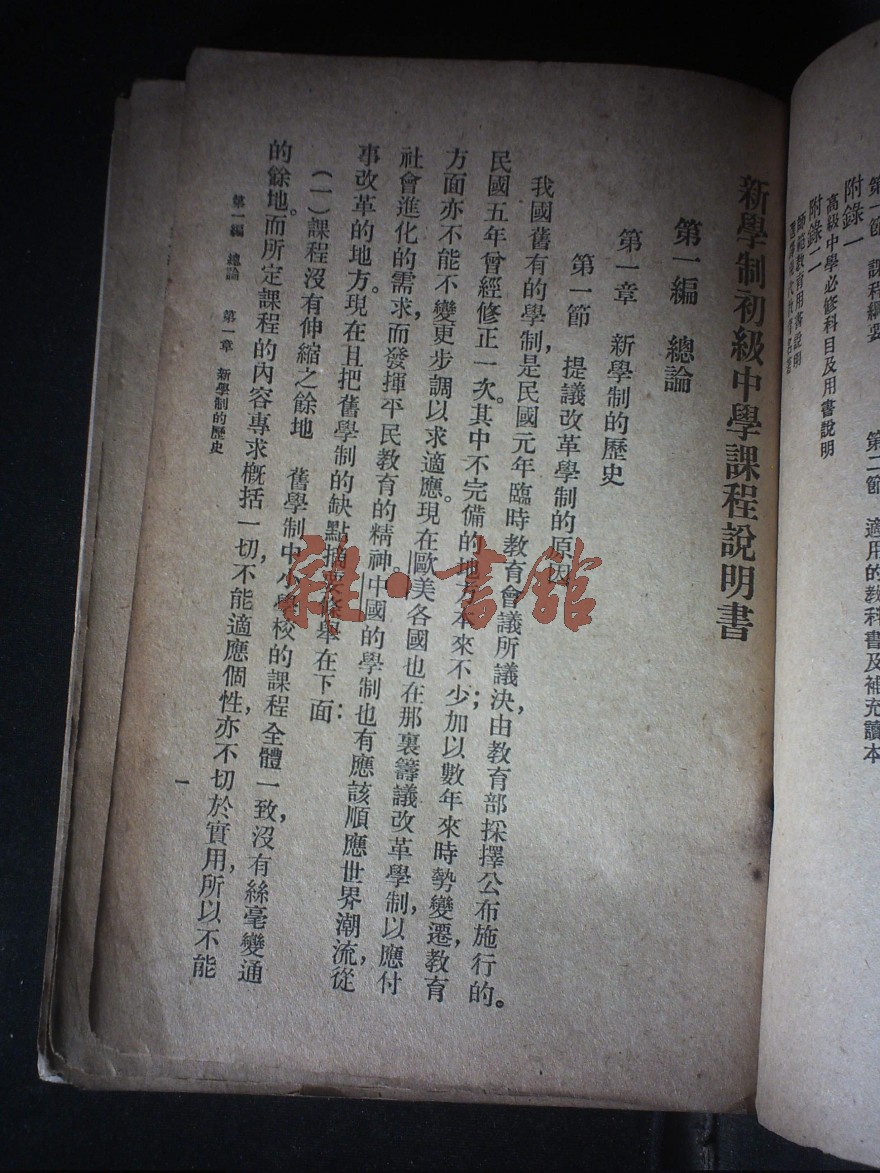 第一節 課程綱要 第二節 適用的教科書及補充讀本
附錄一
高級中學必修科目及用書說明
附錄二
師範教育用書說明
新學制初級中學課程說明書
第一編 總論
第一章 新學制的歷史
第一節 提議改革學制的原因
我國舊有的學制,是民國元年臨時教育會議所議決,由教育部採擇公布施行的。
民國五年曾經修正一次。其中不完備的地方本來不少;加以數年來時勢變遷,教育
方面亦不能不變更步調以求適應。現在歐美各國也在那裏籌議改革學制,以應付
社會進化的需求,而發揮平民教育的精神。中國的學制也有應該順應世界潮流,從
事改革的地方。現在且把舊學制的缺點摘要條舉在下面:
(一)課程沒有伸縮之餘地 舊學制中小學校的課程全體一致,沒有絲毫變通
的餘地。而所定課程的內容專求概括一切,不能適應個性,亦不切於實用,所以不能
第一編 總論 第一章 新學制的歷史
一
雜·書館